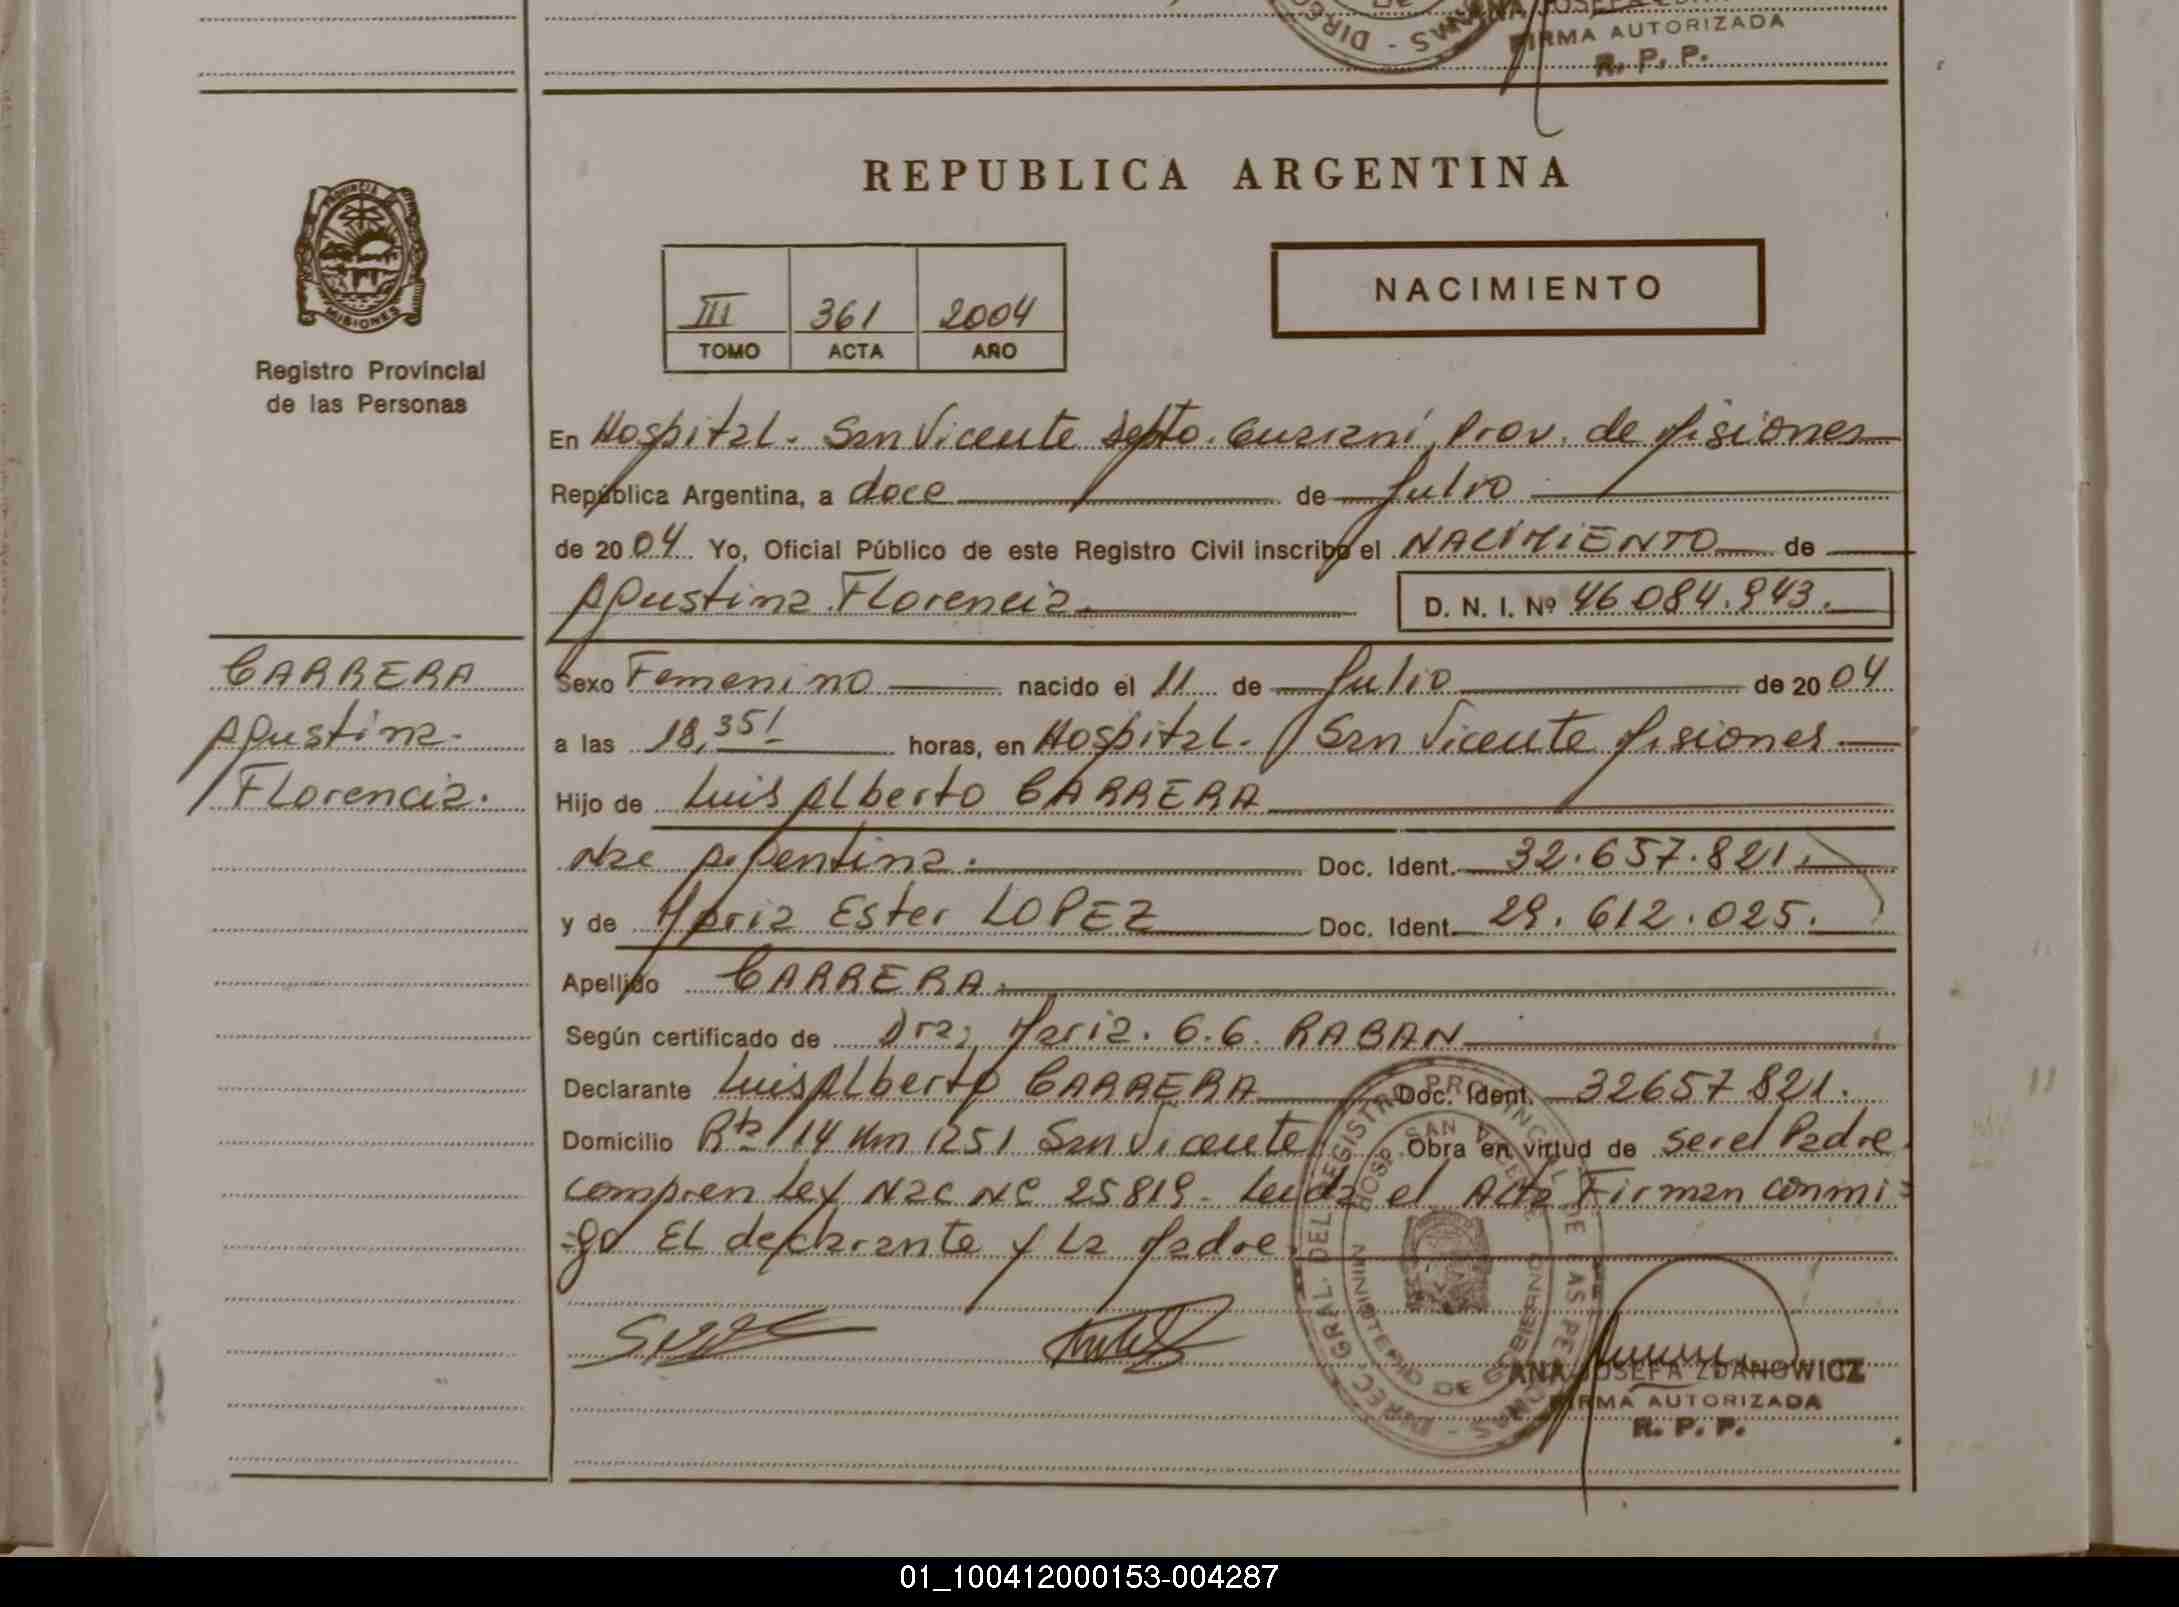 ANA JOSEFA
FIRMA AUTORIZADA
R. P. P.
REPUBLICA ARGENTINA
PROVINCIA DE
MISIONES
Registro Provincial
de las Personas
III 361 2004
TOMO ACTA AÑO
NACIMIENTO
En Hospital. San Vicente Depto. Guarani, Prov. de Misiones
República Argentina, a doce de Julio
de 2004 Yo, Oficial Público de este Registro Civil inscribo el NACIMIENTO de
Agustina Florencia. D. N. I. Nº 46.084.943.
CARRERA
Agustina.
Florencia.
Sexo Femenino nacido el 11 de Julio de 2004
a las 18,35' horas, en Hospital. San Vicente Misiones
Hijo de Luis Alberto CARRERA
Nac Argentina. Doc. Ident. 32.657.821.
y de Maria Ester LOPEZ Doc. Ident. 29.612.025.
Apellido CARRERA.
Según certificado de Dra; Maria. G.G. RABAN
Declarante Luis Alberto CARRERA Doc. Ident. 32657821.
Domicilio Rta 14 Km 1251 San Vicente Obra en virtud de ser el Padre.
compren Ley Nac Nº 25819. Leida el Acta Firman conmi
=go El declarante y La Madre.
DIREC. GRAL. DEL REGISTRO PROVINCIAL DE LAS PERSONAS -
HOSP. SAN VICENTE
MINISTERIO DE GOBIERNO
ANA JOSEFA ZDANOWICZ
FIRMA AUTORIZADA
R. P. P.
01_100412000153-004287